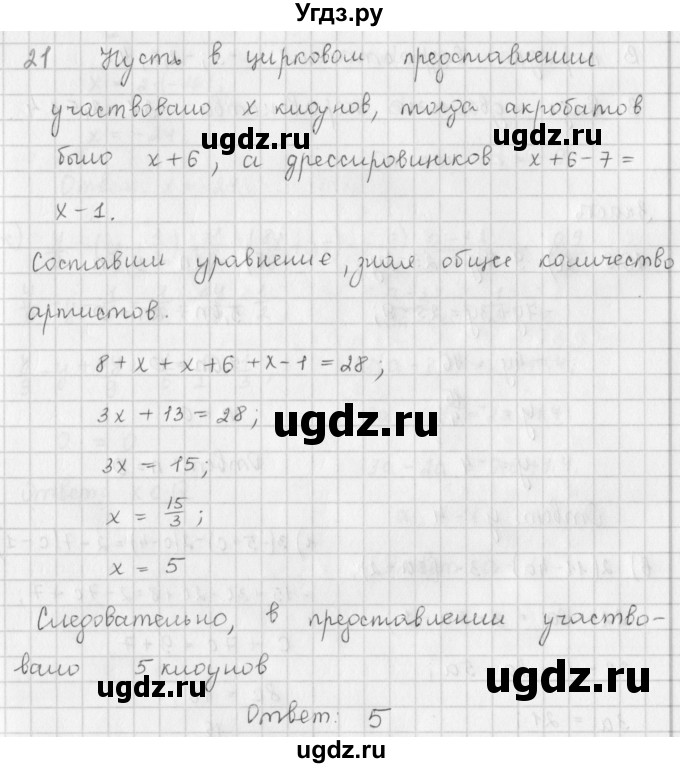 Угдз.ру
21 Пусть в цирковом представлении
участвовало x клоунов, тогда акробатов
ugdz.ru ugdz.ru
было x+6, а дрессировщиков x+6-7=
x-1.
Составим уравнение, зная общее количество
артистов.
8+x+x+6+x-1=28;
3x+13=28;
ugdz.ru
3x=15;
x=15/3;
x=5
Следовательно, в представлении участво-
вало 5 клоунов
ugdz.ru ugdz.ru
Ответ: 5
ugdz.ru